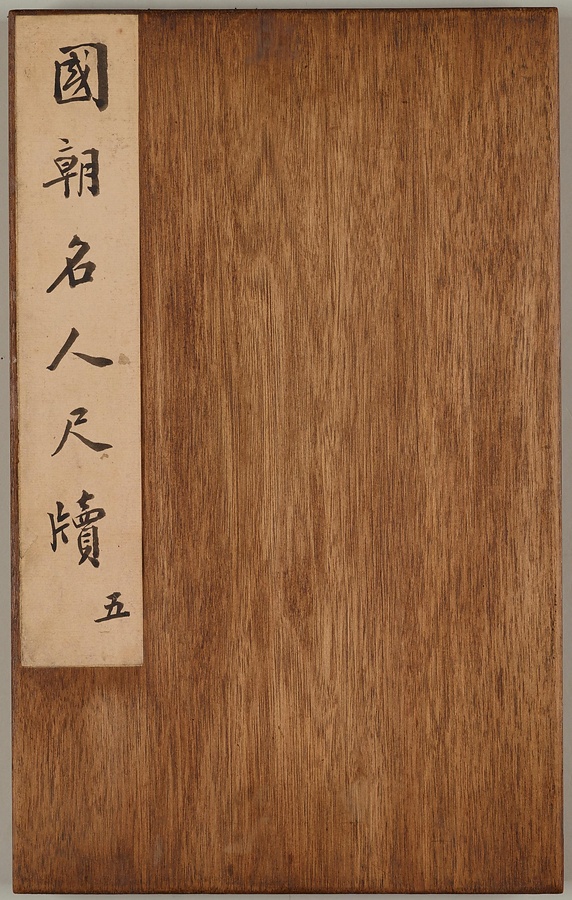 國朝名人尺牘
五